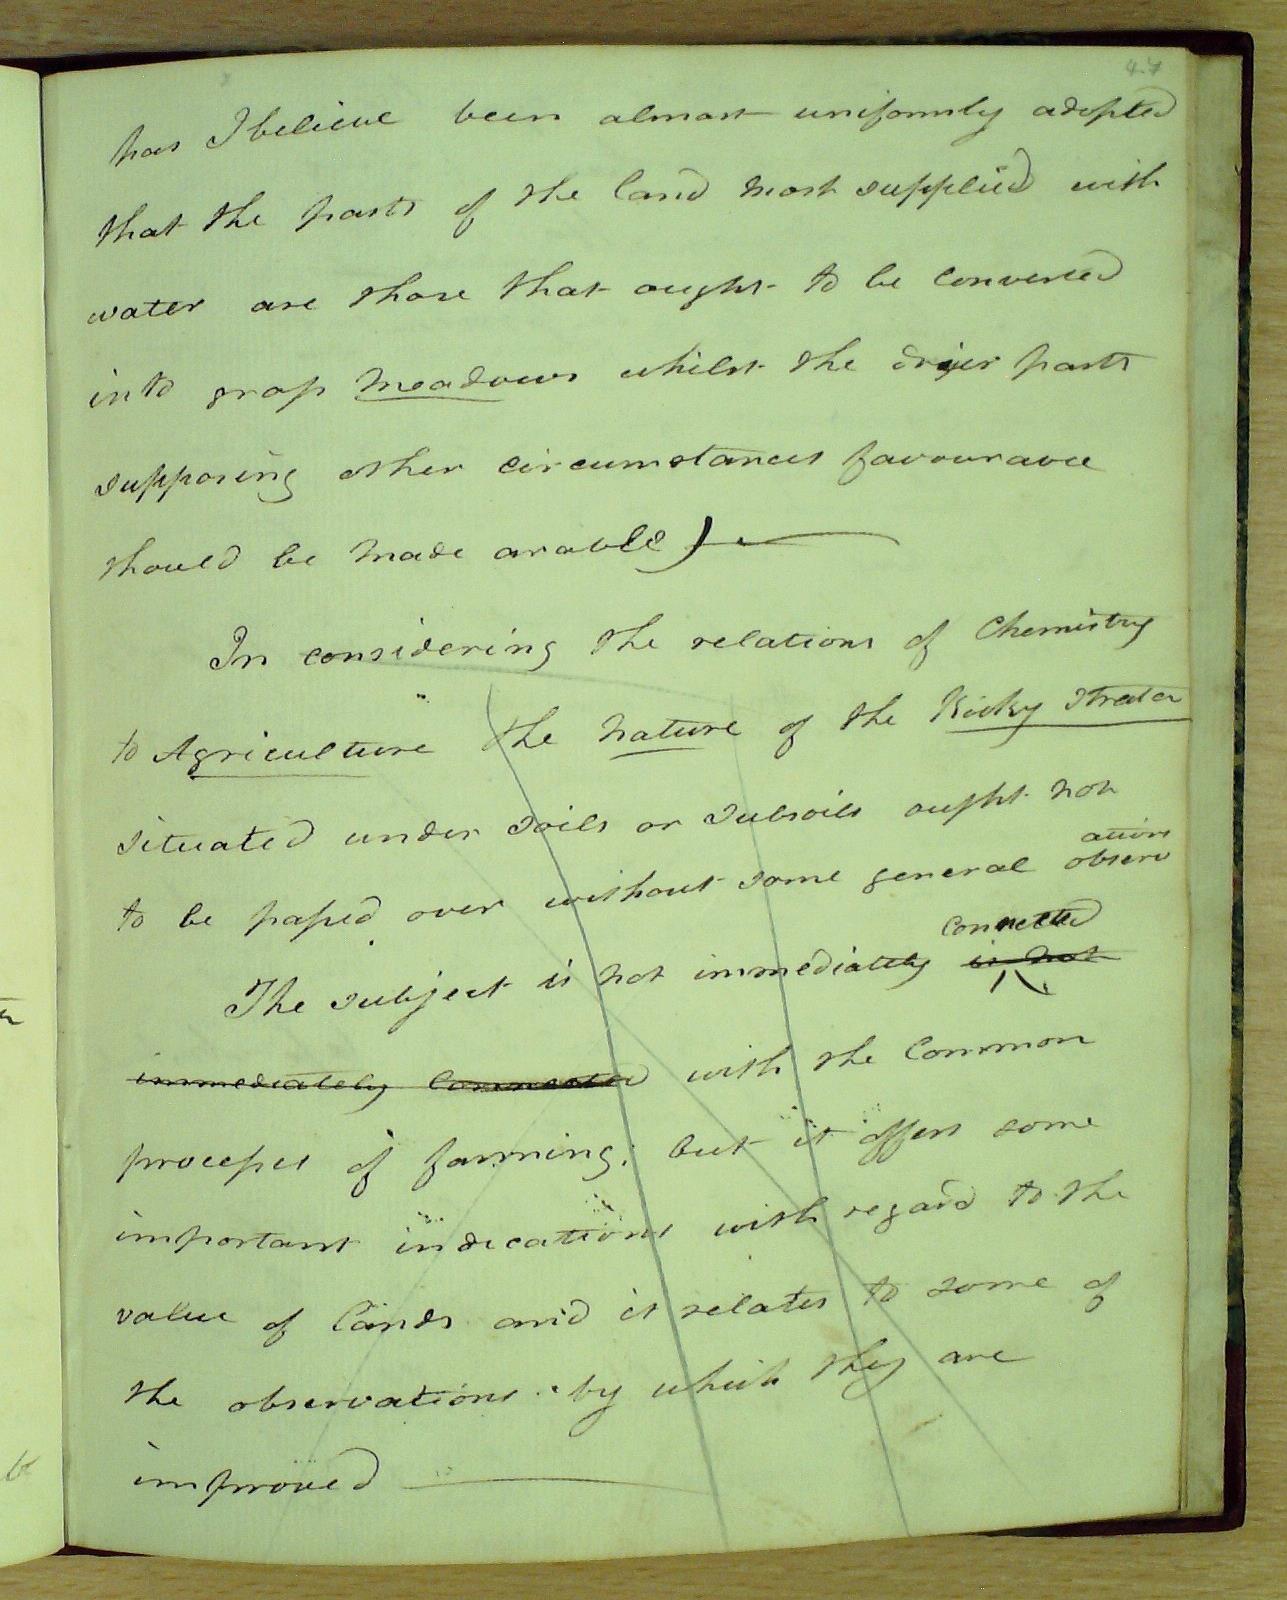 47
has I believe been almost uniformly adopted
that the parts of the land most supplied with
water are those that ought to be converted
into grass meadows whilst the drier parts
supposing other circumstances favourable
should be made arable)
In considering the relations of Chemistry
to Agriculture the nature of the Rocky Strata
situated under soils or subsoils ought not
to be passed over without some general observations
The subject is not immediately is not connected
immediately connected with the Common
processes of farming; but it offers some
important indications with regard to the
value of Lands and it relates to some of
the observations by which they are
improved